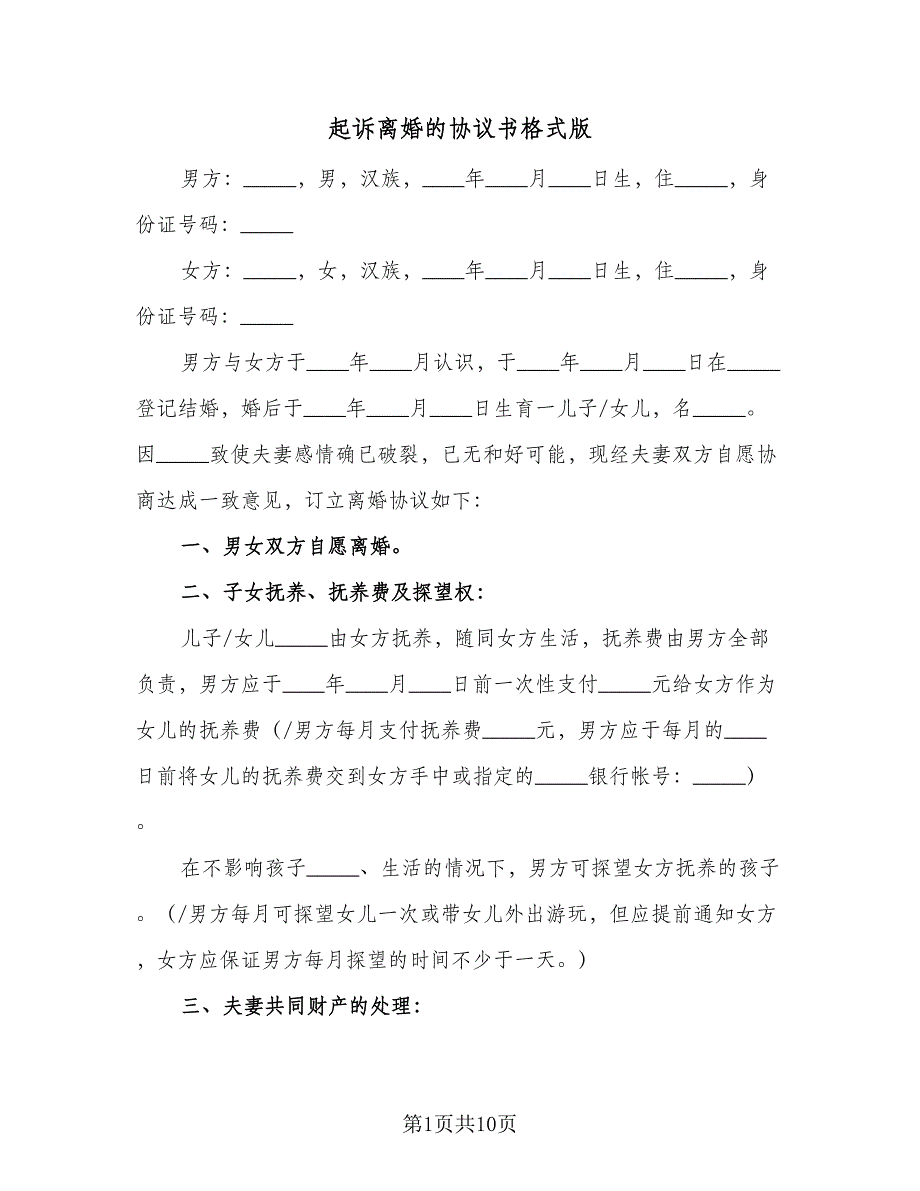 起诉离婚的协议书格式版
男方：_____，男，汉族，____年____月____日生，住_____，身
份证号码：_____
女方：_____，女，汉族，____年____月____日生，住_____，身
份证号码：_____
男方与女方于____年____月认识，于____年____月____日在_____
登记结婚，婚后于____年____月____日生育一儿子/女儿，名_____。
因_____致使夫妻感情确已破裂，已无和好可能，现经夫妻双方自愿协
商达成一致意见，订立离婚协议如下：
一、男女双方自愿离婚。
二、子女抚养、抚养费及探望权：
儿子/女儿_____由女方抚养，随同女方生活，抚养费由男方全部
负责，男方应于____年____月____日前一次性支付_____元给女方作为
女儿的抚养费（/男方每月支付抚养费_____元，男方应于每月的____
日前将女儿的抚养费交到女方手中或指定的_____银行帐号：_____）
。
在不影响孩子_____、生活的情况下，男方可探望女方抚养的孩子
。（/男方每月可探望女儿一次或带女儿外出游玩，但应提前通知女方
，女方应保证男方每月探望的时间不少于一天。）
三、夫妻共同财产的处理：
第1页共10页